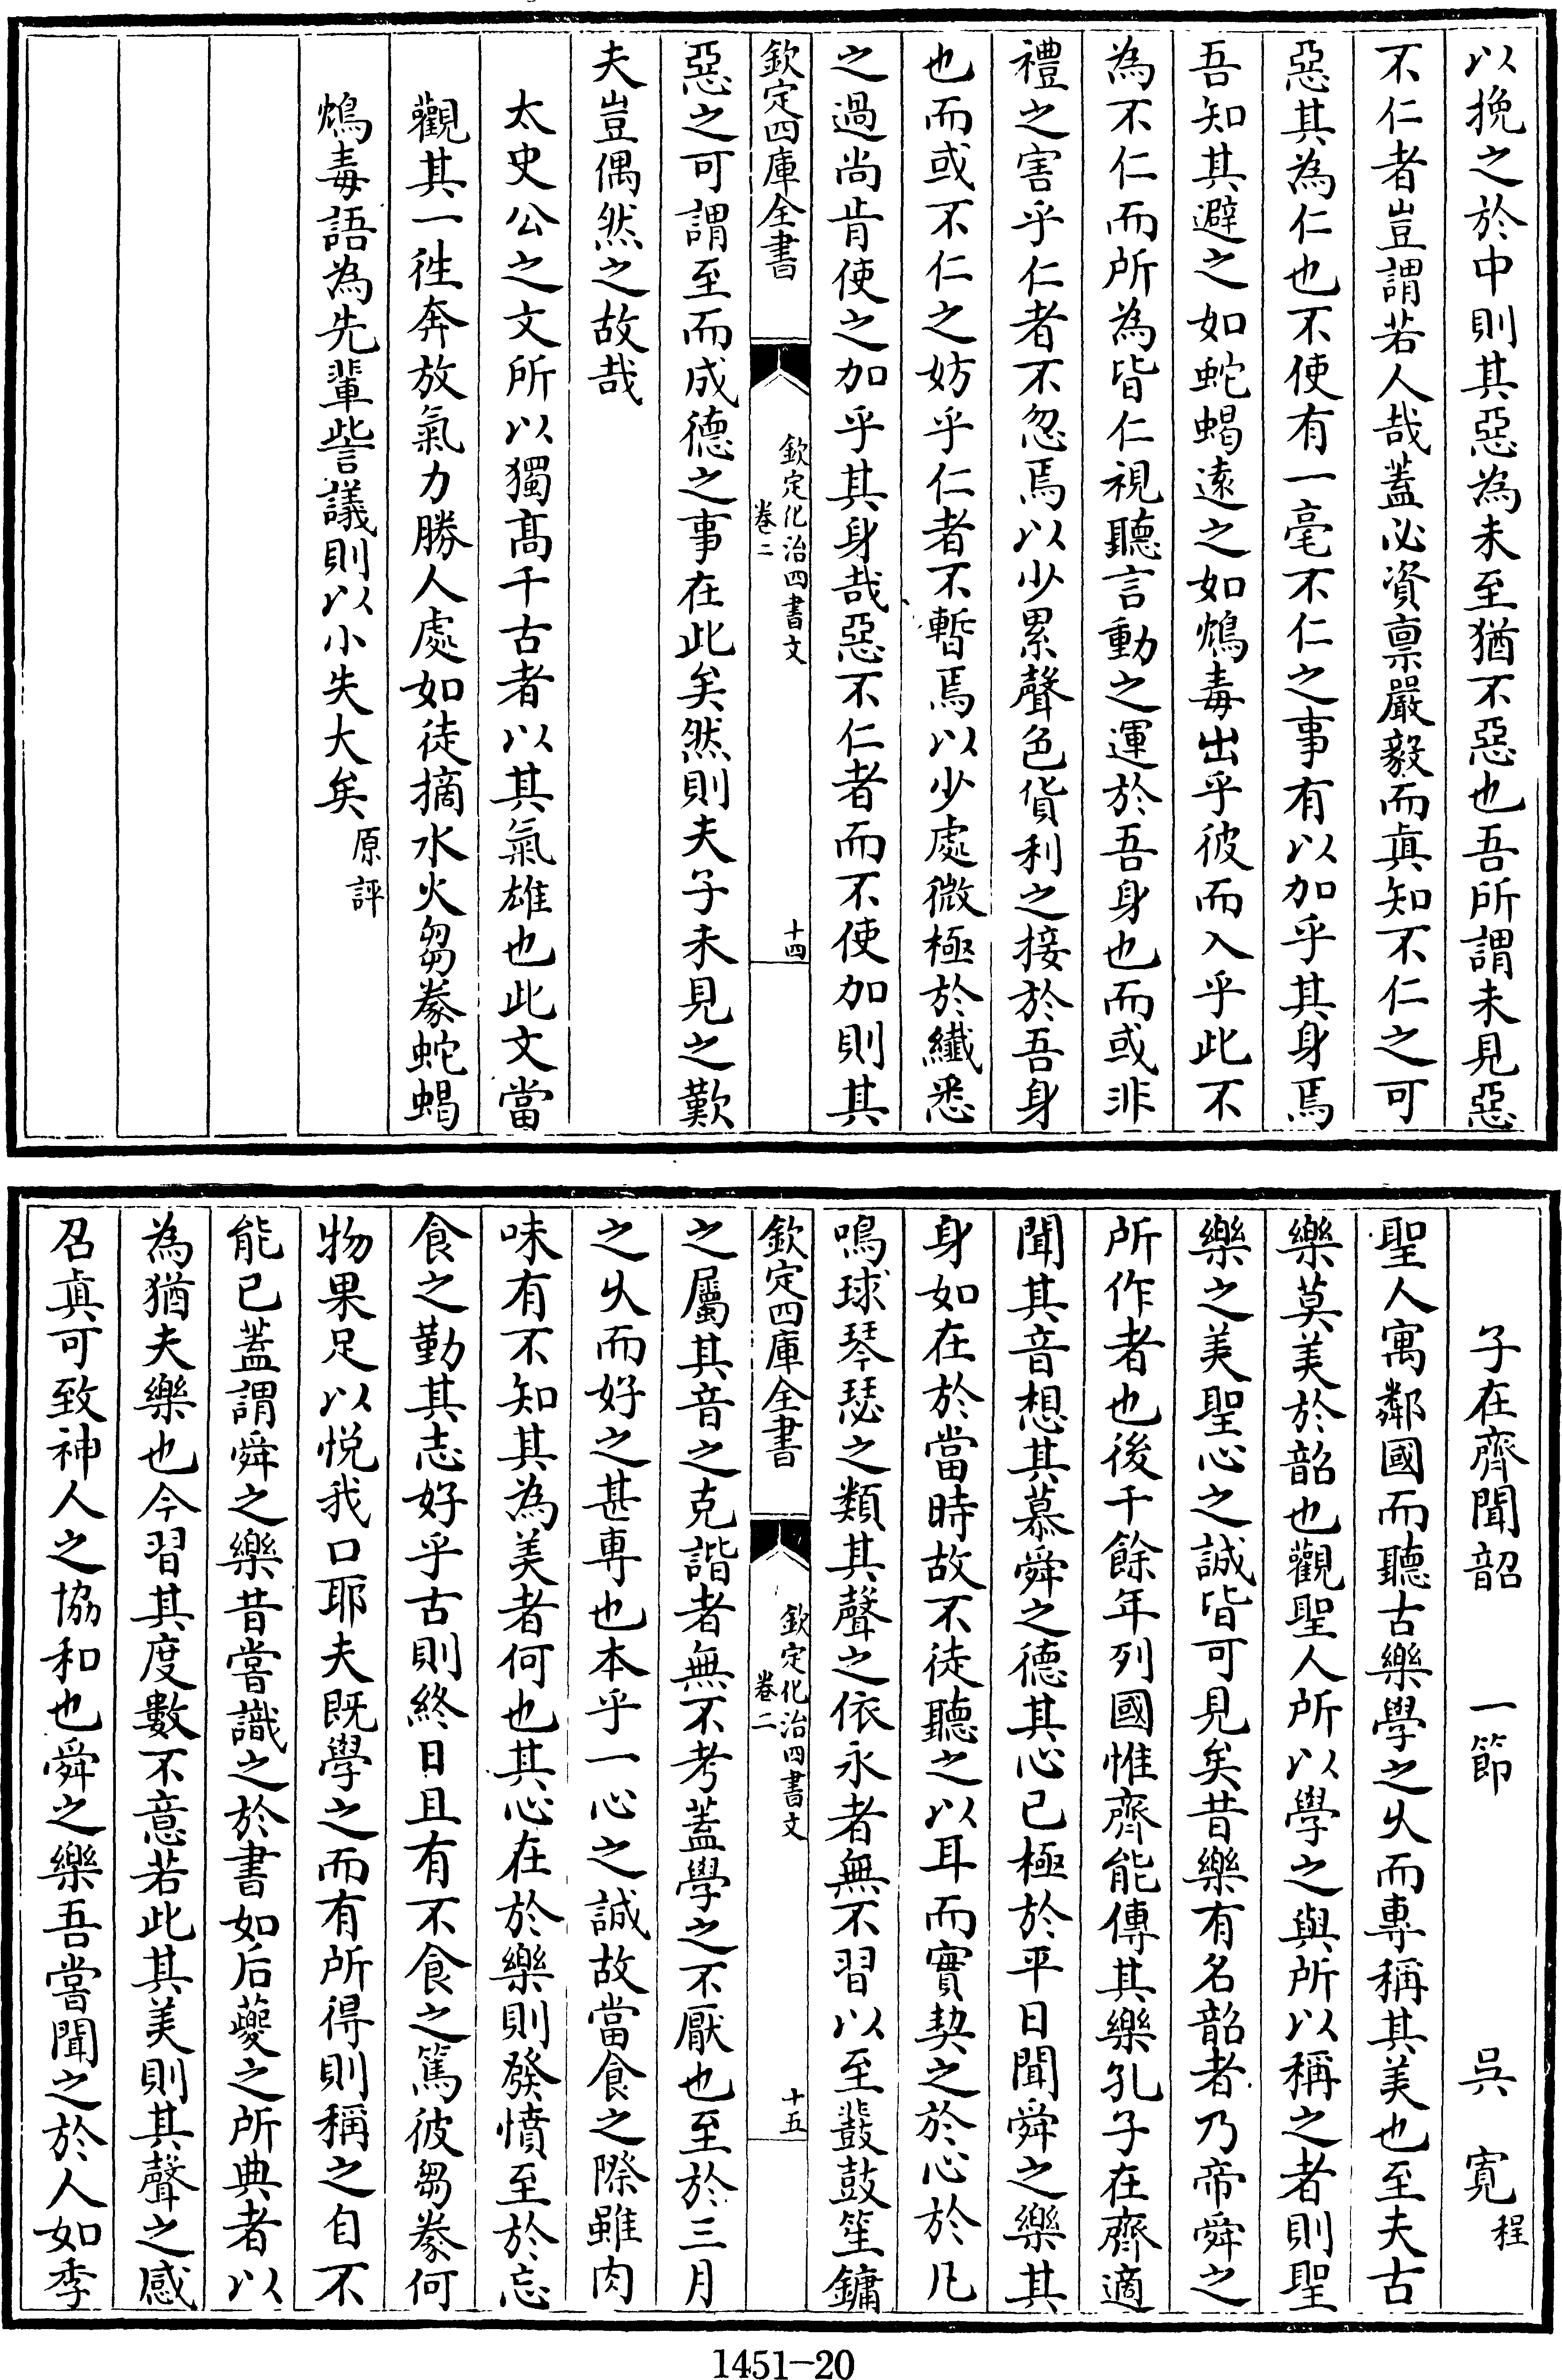 以挽之於中則其惡為未至猶不惡也吾所謂未見惡
不仁者豈謂若人哉蓋必資禀嚴毅而真知不仁之可
惡其為仁也不使有一毫不仁之事有以加乎其身焉
吾知其避之如蛇蝎遠之如鴆毒出乎彼而入乎此不
為不仁而所為皆仁視聽言動之運於吾身也而或非
禮之害乎仁者不忽焉以少累聲色貨利之接於吾身
也而或不仁之妨乎仁者不暫焉以少處微極於纖悉
之過尚肯使之加乎其身哉惡不仁者而不使加則其
欽定四庫全書
欽定化治四書文
卷二
十四
惡之可謂至而成德之事在此矣然則夫子未見之歎
夫豈偶然之故哉
太史公之文所以獨高千古者以其氣雄也此文當
觀其一徃奔放氣力勝人處如徒摘水火芻豢蛇蝎
鴆毒語為先輩訾議則以小失大矣原評
子在齊聞韶 一節 吳寛程
聖人寓鄰國而聽古樂學之乆而專稱其美也至夫古
樂莫美於韶也觀聖人所以學之與所以稱之者則聖
樂之美聖心之誠皆可見矣昔樂有名韶者乃帝舜之
所作者也後千餘年列國惟齊能傳其樂孔子在齊適
聞其音想其慕舜之德其心已極於平日聞舜之樂其
身如在於當時故不徒聽之以耳而實契之於心於凡
鳴球琴瑟之類其聲之依永者無不習以至鼗鼓笙鏞
欽定四庫全書
欽定化治四書文
卷二
十五
之屬其音之克諧者無不考蓋學之不厭也至於三月
之乆而好之甚專也本乎一心之誠故當食之際雖肉
味有不知其為美者何也其心在於樂則發憤至於忘
食之勤其志好乎古則終日且有不食之篤彼芻豢何
物果足以悅我口耶夫既學之而有所得則稱之自不
能已蓋謂舜之樂昔嘗識之於書如后夔之所典者以
為猶夫樂也今習其度數不意若此其美則其聲之感
召真可致神人之協和也舜之樂吾嘗聞之於人如季
1451-20